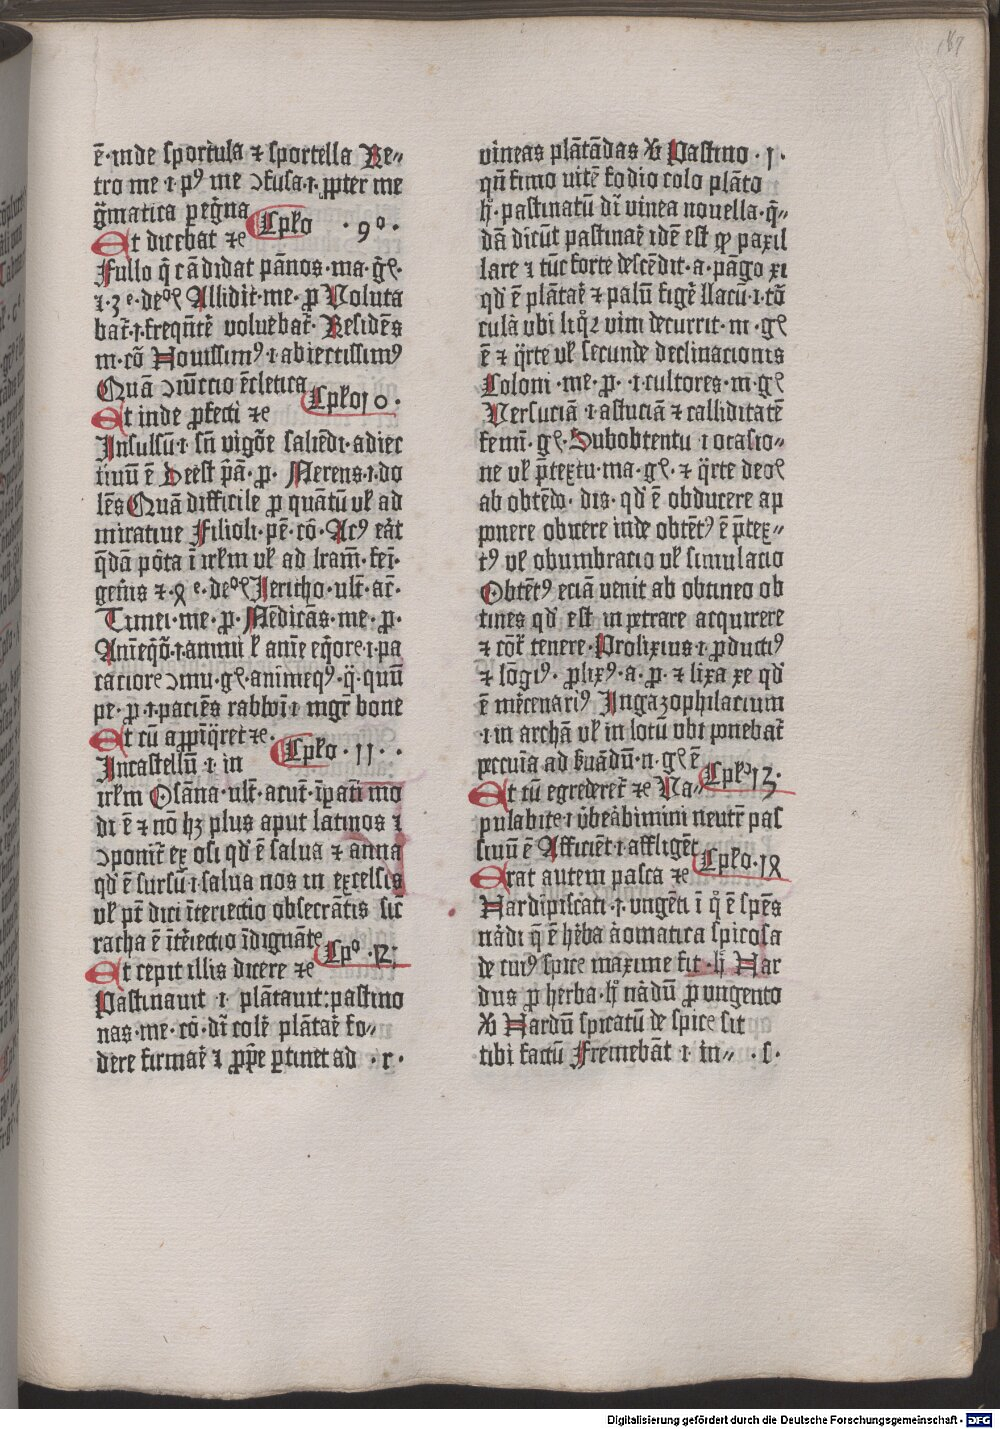 187
ē · inde sportula ⁊ sportella Re„
tro me · i · pꝰ me ɔfusa · i · ꝓpter me
g̃matica peg̓na
Cpło · 9º ·
Et dicebat ⁊c
Fullo q̄ cādidat pānos · ma · g̓ł ·
⁊ · 3ᵉ · deºł Allidit · me · p Voluta
bat̄ · i · freqn̄tē voluebat̄ · Residēs
m · cō Nouissimꝰ · i · abiectissimꝰ
Quā ɔuēcio ēcletica
Cpło 10 ·
Et inde ꝓfecti ⁊c
Insulsū · i · sn̄ vigōe saliēdi · adiec
tiuū ē Deest p̄ā · p · Merens · i · do
lēs Quā difficile ꝓ quātū vł ad
miratiue Filioli · pē · cō · Acꝰ eāt
q̄dā pōta ī irłm vł ad lram̄ · fēī ·
gen̄is ⁊ · ꝝ ᵉ · deºł Jericho · ult̄ · ac̄ ·
Timei · me · p · Mēdicās · me · p ·
Aīeq̄o · i · animi ł anīe eq̄ore · i · pa
raciore ɔmu · gł · animeqꝰ · q̈ · quū
pe · p · i · paciēs rabboī · i · mgr̄ bone
Et cū appīq̈ret ⁊c ·
Cpło · 11 ·
Incastellū · i · in
irłm Osāna · ult̄ · acut̄ · ip̄an̄ mo
di ē ⁊ nō hꝫ plus aput latinos ⁊
ɔponit̄ ex osi qd̓ ē salua ⁊ anna
qd̓ ē sursū · i · salua nos in excelsis
vł pt̄ dici īteriectio obsecrātis sic̄
racha ē ītēiectio īdignāte
Cpº · 12 ·
Et cepit illis dicere ⁊c
Pastinauit · i · plātauit : pastino
nas · me · cō · dī colē plātaē fo„
dēre firmaē ⁊ ꝓpe ꝑtinet ad · r ·
vineas plātādas Ꝟ Pastino · i ·
qn̄ fimo uitē fodio colo plāto
h̓ · pastinatū dī vinea nouella · q̄„
dā dicūt pastinaē idē est qꝙ paxil
lare ⁊ tūc forte descēdit · a · pāgo xi
qd̓ ē plātaē ⁊ palū figē llacū · i · tō
culā ubi liqͦꝛ vini decurrit · m · gł
ē ⁊ q̈rte vł secunde declinacionis
Coloni · me · p · i · cultores · m · gł
Versuciā · i · astuciā ⁊ calliditatē
femī · gł · Subobtentu · i · ocasio„
ne vł p̄textu · ma · gł · ⁊ q̈rte deoł
ab obtēdo · dis · qd̓ ē obducere ap
ponere obuere inde obtētꝰ ē p̄tex„
tꝰ vł obumbracio vł simulacio
Obtētꝰ eciā venit ab obtineo ob
tines qd̓ est inpetrare acquirere
⁊ cōt̄ tenere · Prolixius · i · ꝓductiꝰ
⁊ lōgiꝰ · ꝓlixꝰ · a · p · ⁊ lixa xe qd̓
ē mēcenariꝰ Ingazophilacium
· i · in archā vł in lotū ubi ponebat̄
peccuīa ad fuādū · n · gł ē
Cpło 13 ·
Et cū egrederet̄ ⁊c Va„
pulabite · i · ūbeābimini neutr̄ pas
siuū ē Afficiēt · i · affligēt
Cpło · 1ꝝ
Erat autem pasca ⁊c
Nardipiscāti · i · ungēti ī qͦ ē spēs
nādi q̄ ē hēba āomatica spicosa
de cuiꝰ spice maxime fit · h̓ Nar
dus ꝓ herba · h̓ nādū ꝓ ungento
Ꝟ Nardū spicatū de spice sit
tibi factū Fremebāt · i · in„ · s ·
Digitalisierung gefördert durch die Deutsche Forschungsgemeinschaft - DFG